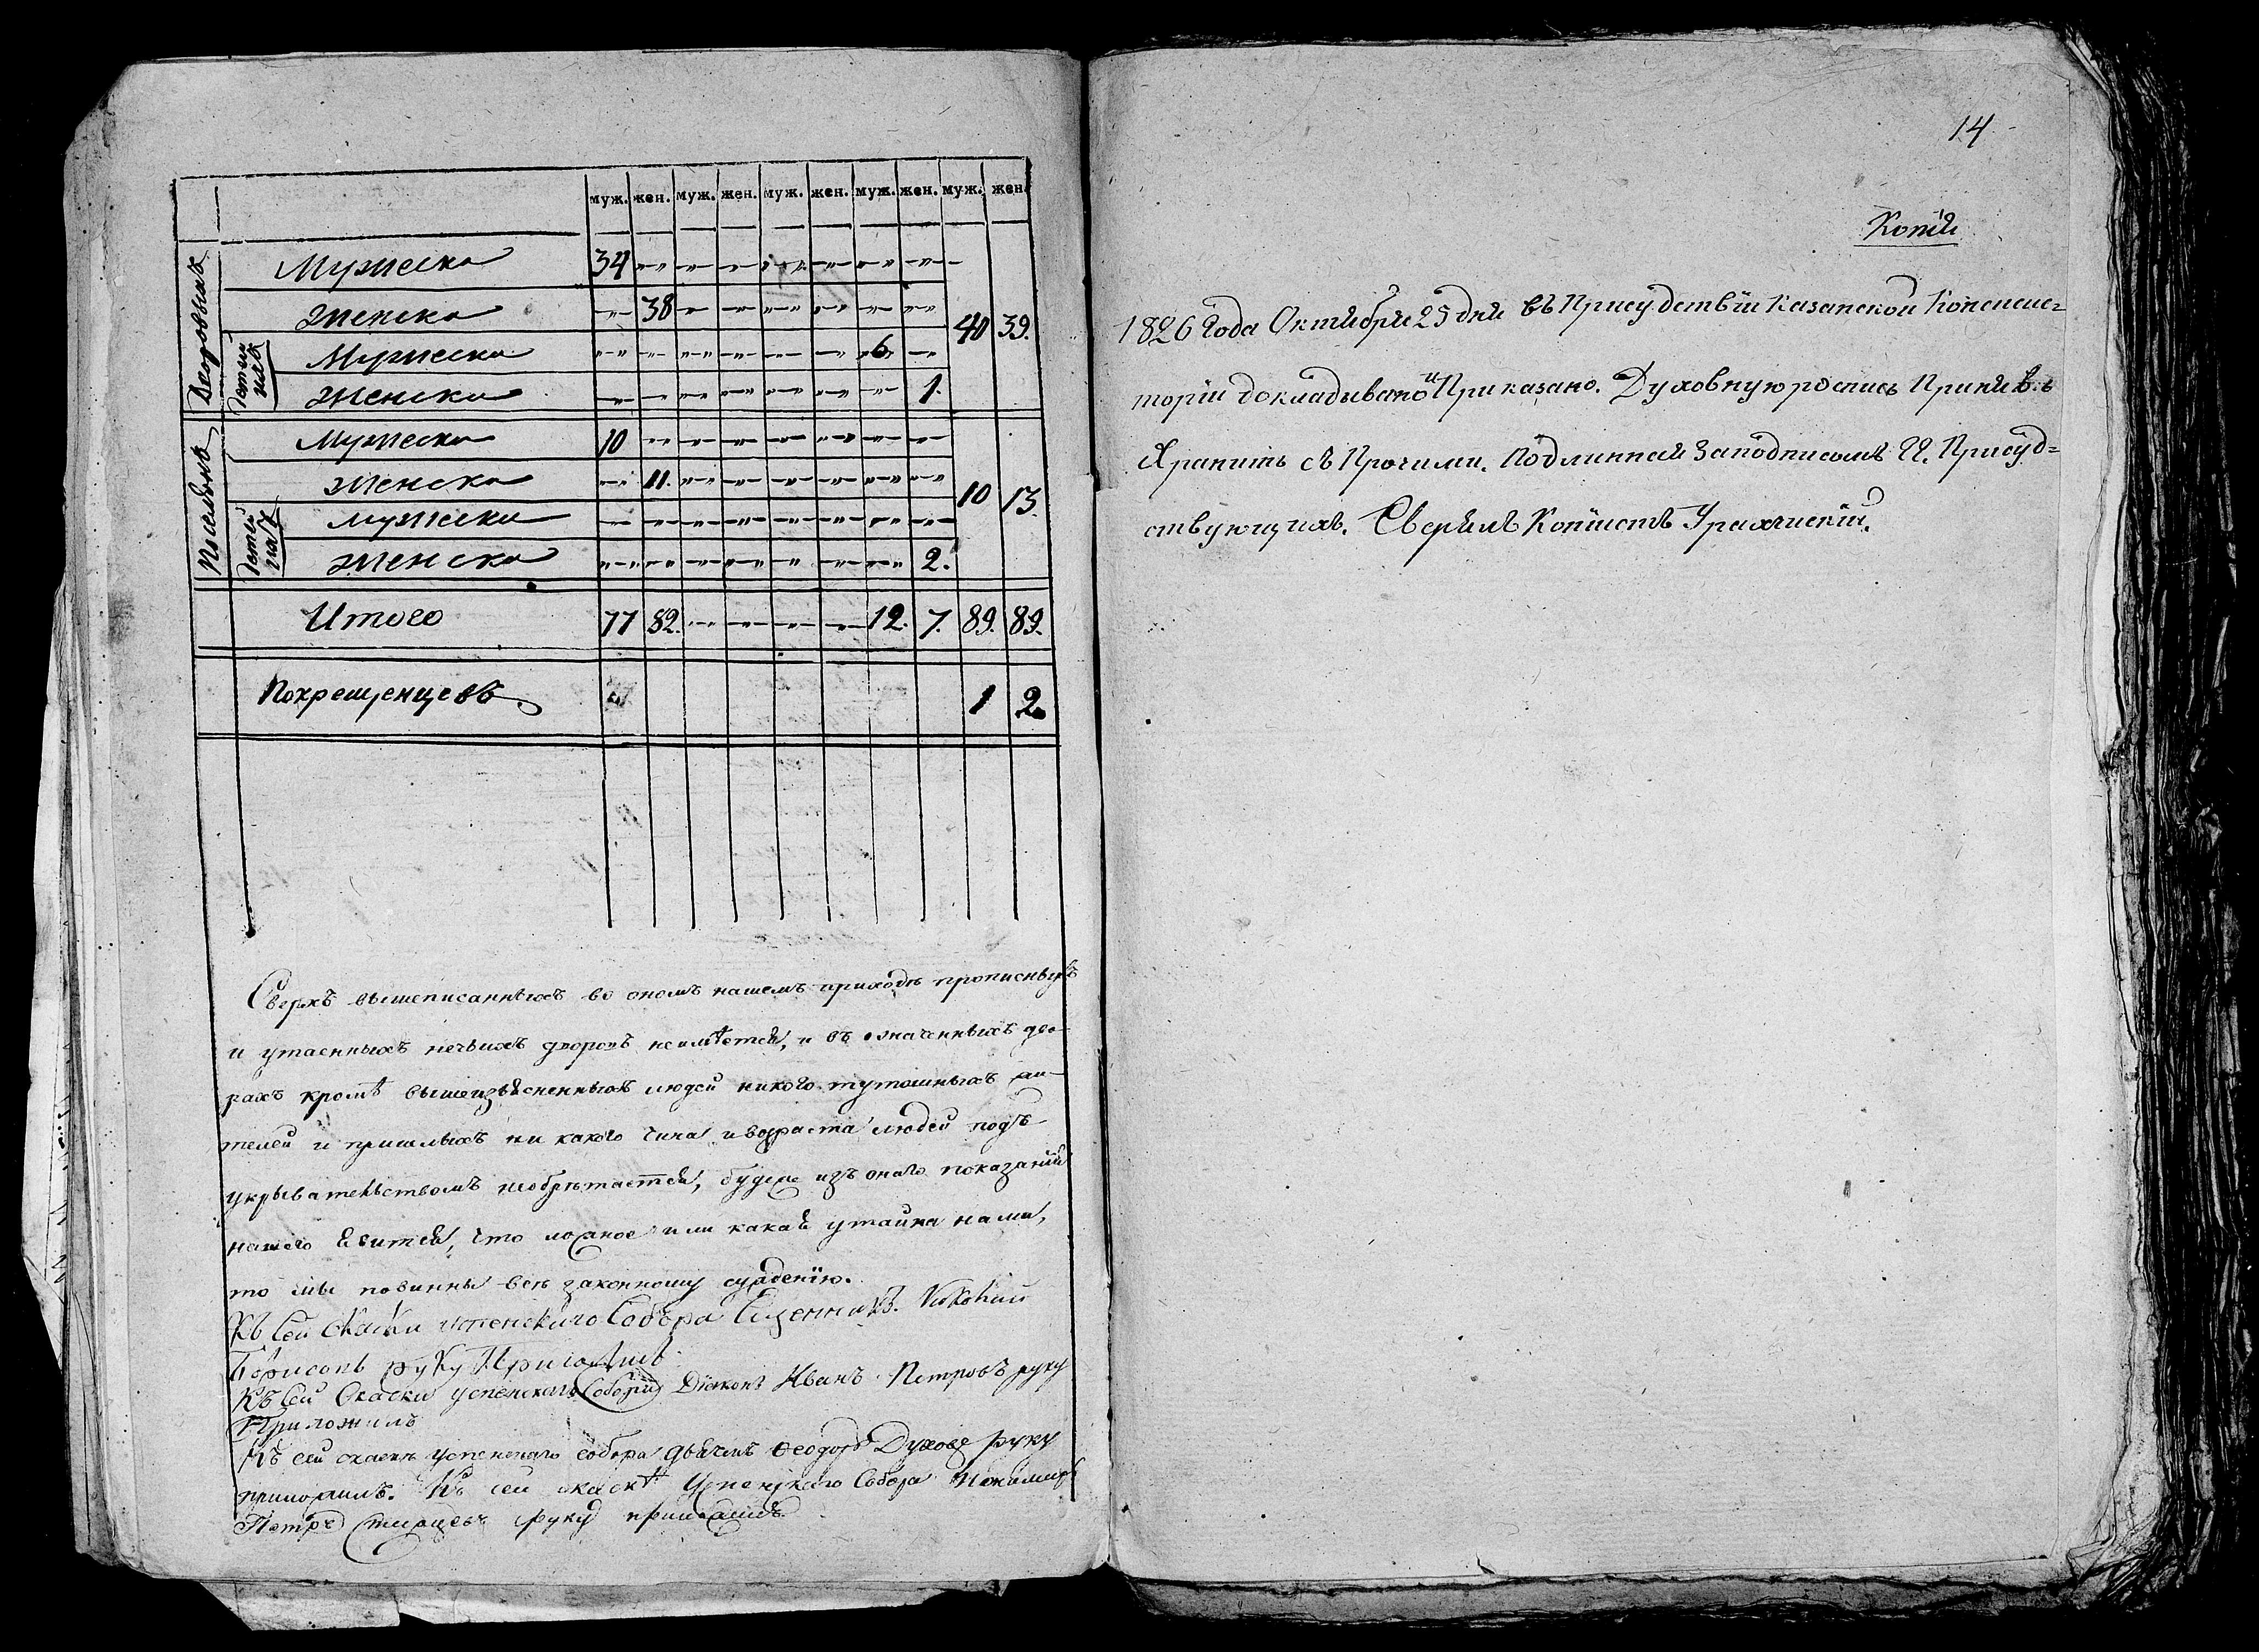 муж. жен. муж. жен. муж. жен. муж. жен. муж. жен.
Дворовыхъ
Мужеска 34 40 39.
Женска 38
Детми
Мужеска 6
Женска 1.
Поселянъ
Мужеска 10 10 13.
Женска 11.
Детми
Мужеска
Женска 2.
Итого 77 82. 12. 7. 89. 89.
Покрещенцевъ 1 2
Сверхъ вышеписанныхъ во ономъ нашемъ приходѣ прописныхъ
и утаенныхъ нечьихъ дворовъ неимѣется, и въ означенныхъ дво-
рахъ кромѣ вышеизъясненныхъ людей никого тутошныхъ жи-
телей и пришлыхъ ни какого чина и возраста людей подъ
укрывательствомъ необрѣтается, буде же изъ онаго показанія
нашего явится, что ложное или какая утайка нами,
то мы повинны всѣ законному суждению.
Къ сей скаски успенскаго Собора Сщенникъ
Борисовъ руку Приложилъ
Къ сей Скаски успенскаго Собора Діаконъ Иванъ Петровъ руку
Приложилъ
Къ сей скаскѣ успенскаго собора дьячекъ Ѳеодоръ руку
приложилъ. Къ сей скаскѣ Успенскаго Собора Пономарь
Петръ руку приложилъ
14.
Копія
1826 года Октября 25 дня въ Присудствіи Казанской Консис=
торіи докладывано и Приказано. Духовную роспись Принявъ
Хранить съ Прочими. Подлинной Заподписомъ Гг. Присуд=
ствующихъ. Сверялъ Копіистъ